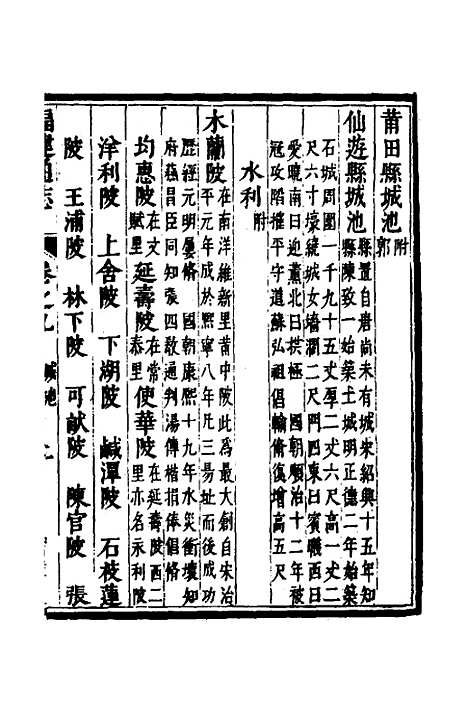 莆田縣城池附郭
仙遊縣城池縣置自唐尚未有城宋紹興十五年知
縣陳致一始築土城明正德二年始築
石城周圍一千九十五丈厚二丈六尺高一丈二
尺六寸壕繞城女墻濶二尺門四東曰賓曦西曰
愛曉南曰迎薰北曰拱極 國朝順治十二年被
寇攻陷摧平守道蘇弘祖倡輸脩復增高五尺
水利附
木蘭陂在南洋維新里莆中陂此爲最大創自宋治
平元年成於熙寧八年凡三易址而後成功
歷經元明屢脩 國朝康熙十九年水災衝壞知
府蘇昌臣同知張四敎通判湯傳楷捐俸倡脩
均惠陂在文賦里延壽陂在常泰里使華陂在延壽陂西二里亦名永利陂
津利陂 上舍陂 下湖陂 鹹潭陂 石枝蓮
陂 王浦陂 林下陂 可猷陂 陳官陂 張
福建通志 卷之九 城池